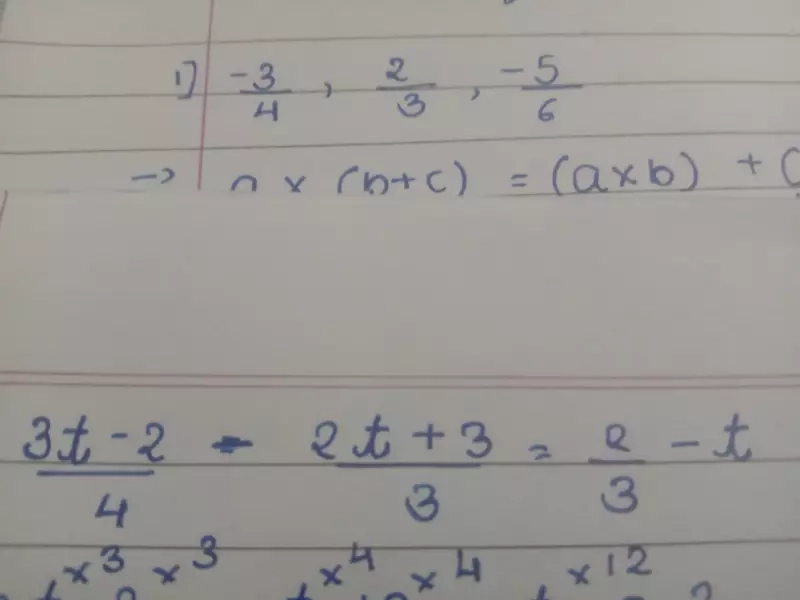 1] -3/4 , 2/3 , -5/6
→ a × (b+c) = (a×b) + (
3t-2/4 - 2t+3/3 = 2/3 - t
×3 ×3 ×4 ×4 ×12